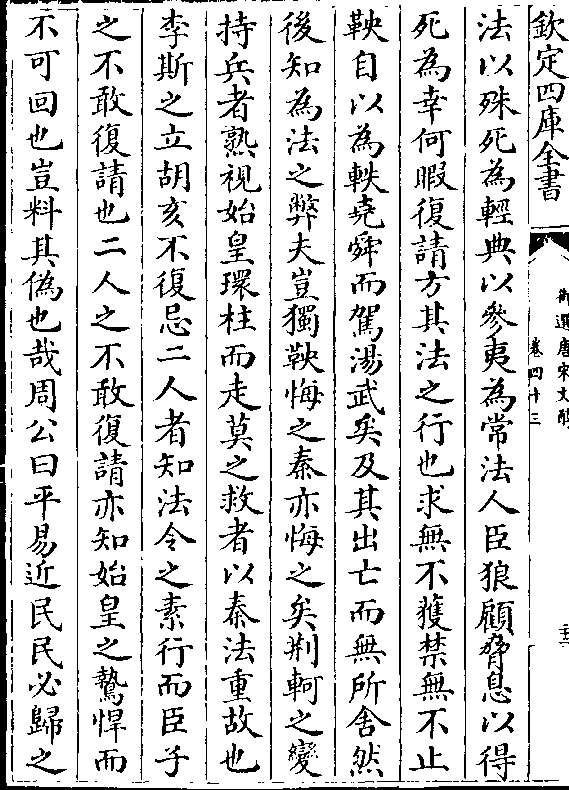 欽定四庫全書
御選唐宋文醇
卷四十三
法以殊死為輕典以參夷為常法人臣狼顧脅息以得
死為幸何暇復請方其法之行也求無不獲禁無不止
鞅自以為軼堯舜而駕湯武矣及其出亡而無所舍然
後知為法之弊夫豈獨鞅悔之秦亦悔之矣荆軻之變
持兵者熟視始皇環柱而走莫之救者以秦法重故也
李斯之立胡亥不復忌二人者知法令之素行而臣子
之不敢復請也二人之不敢復請亦知始皇之鷙悍而
不可回也豈料其偽也哉周公曰平易近民民必歸之